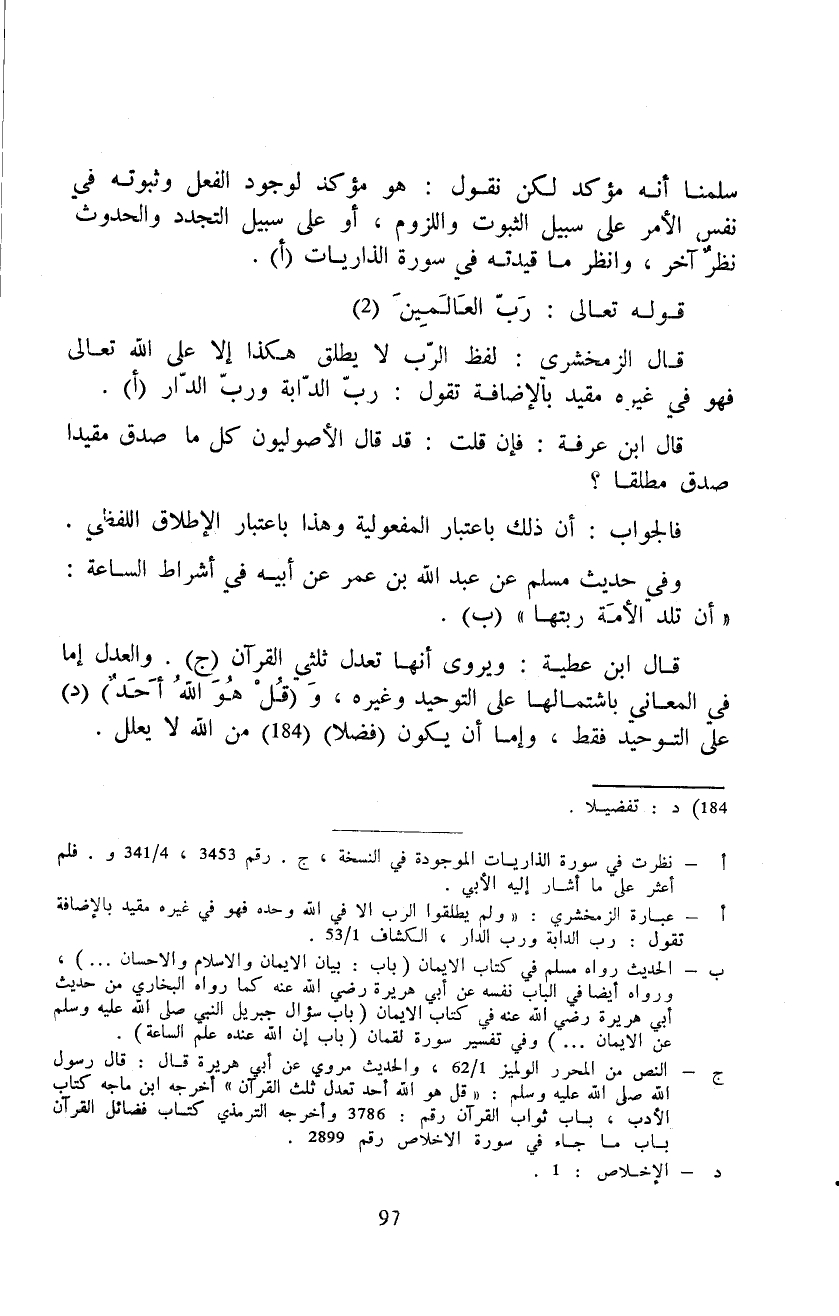 سلمنا أنه مؤكد لكن نقول : هو مؤكد لوجود الفعل وثبوته في
نفس الأمر على سبيل الثبوت واللزوم ، أو على سبيل التجدد والحدوث
نظرٌ آخر ، وانظر ما قيدته في سورة الذاريات (أ) .
قوله تعالى : رَبِّ العَالَمِينَ (2)
قال الزمخشرى : لفظ الرّب لا يطلق هكذا إلا على الله تعالى
فهو في غيره مقيد بالإضافة تقول : ربّ الدّابة وربّ الدّار (أ) .
قال ابن عرفة : فإن قلت : قد قال الأصوليون كل ما صدق مقيدا
صدق مطلقا ؟
فالجواب : أن ذلك باعتبار المفعولية وهذا باعتبار الإطلاق اللفظي .
وفي حديث مسلم عن عبد الله بن عمر عن أبيه في أشراط الساعة :
« أن تلد الأمَة ربتها » (ب) .
قال ابن عطية : ويروى أنها تعدل ثلثي القرآن (ج) . والعدل إما
في المعاني باشتمالها على التوحيد وغيره ، وَ (قُلْ هُوَ اللهُ أَحَدٌ) (د)
على التوحيد فقط ، وإما أن يكون (فضلا) (184) من الله لا يعلل .
184) د : تفضيلا .
أ – نظرت في سورة الذاريات الموجودة في النسخة ، ج . رقم 3453 ، 341/4 و . فلم
أعثر على ما أشار إليه الأبي .
أ – عبارة الزمخشري : « ولم يطلقوا الرب الا في الله وحده فهو في غيره مقيد بالإضافة
تقول : رب الدابة ورب الدار ، الكشاف 53/1 .
ب – الحديث رواه مسلم في كتاب الايمان ( باب : بيان الايمان والاسلام والاحسان ... ) ،
ورواه أيضا في الباب نفسه عن أبي هريرة رضي الله عنه كما رواه البخاري من حديث
أبي هريرة رضي الله عنه في كتاب الايمان ( باب سؤال جبريل النبي صلى الله عليه وسلم
عن الايمان ... ) وفي تفسير سورة لقمان ( باب إن الله عنده علم الساعة ) .
ج – النص من المحرر الوليز 62/1 ، والحديث مروي عن أبي هريرة قال : قال رسول
الله صلى الله عليه وسلم : « قل هو الله أحد تعدل ثلث القرآن » أخرجه ابن ماجه كتاب
الأدب ، باب ثواب القرآن رقم : 3786 وأخرجه الترمذي كتاب فضائل القرآن
باب ما جاء في سورة الاخلاص رقم 2899 .
د – الإخلاص : 1 .
97